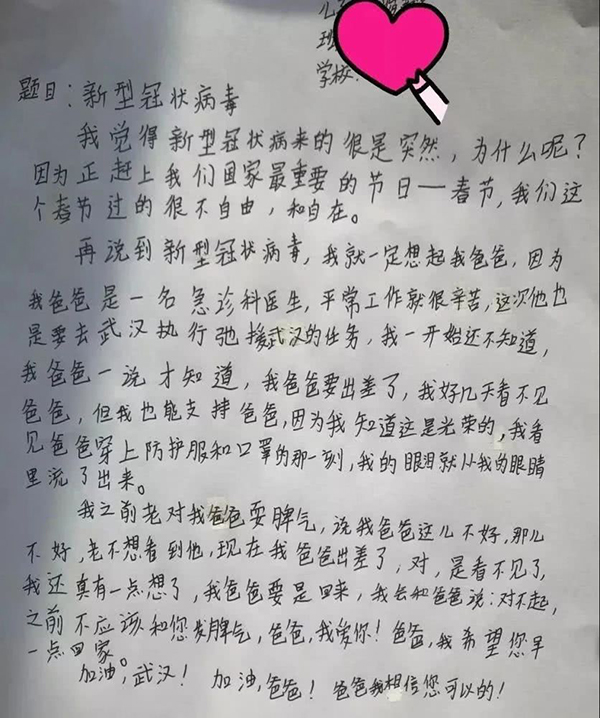 班
学校:
题目：新型冠状病毒
我觉得新型冠状病来的很是突然，为什么呢？
因为正赶上我们国家最重要的节日——春节，我们这
个春节过的很不自由，和自在。
再说到新型冠状病毒，我就一定想起我爸爸，因为
我爸爸是一名急诊科医生，平常工作就很辛苦，这次他也
是要去武汉执行弛援武汉的任务，我一开始还不知道，
我爸爸一说才知道，我爸爸要出差了，我好几天看不见
爸爸，但我也能支持爸爸，因为我知道这是光荣的，我看
见爸爸穿上防护服和口罩的那一刻，我的眼泪就从我的眼睛
里流了出来。
我之前老对我爸爸耍脾气，说我爸爸这儿不好，那儿
不好，老不想看到他，现在我爸爸出差了，对，是看不见了，
我还真有一点想了，我爸爸要是回来，我会和爸爸说：对不起，
之前不应该和您发脾气，爸爸，我爱你！爸爸，我希望您早
一点回家。
加油，武汉！加油，爸爸！爸爸我相信您可以的！